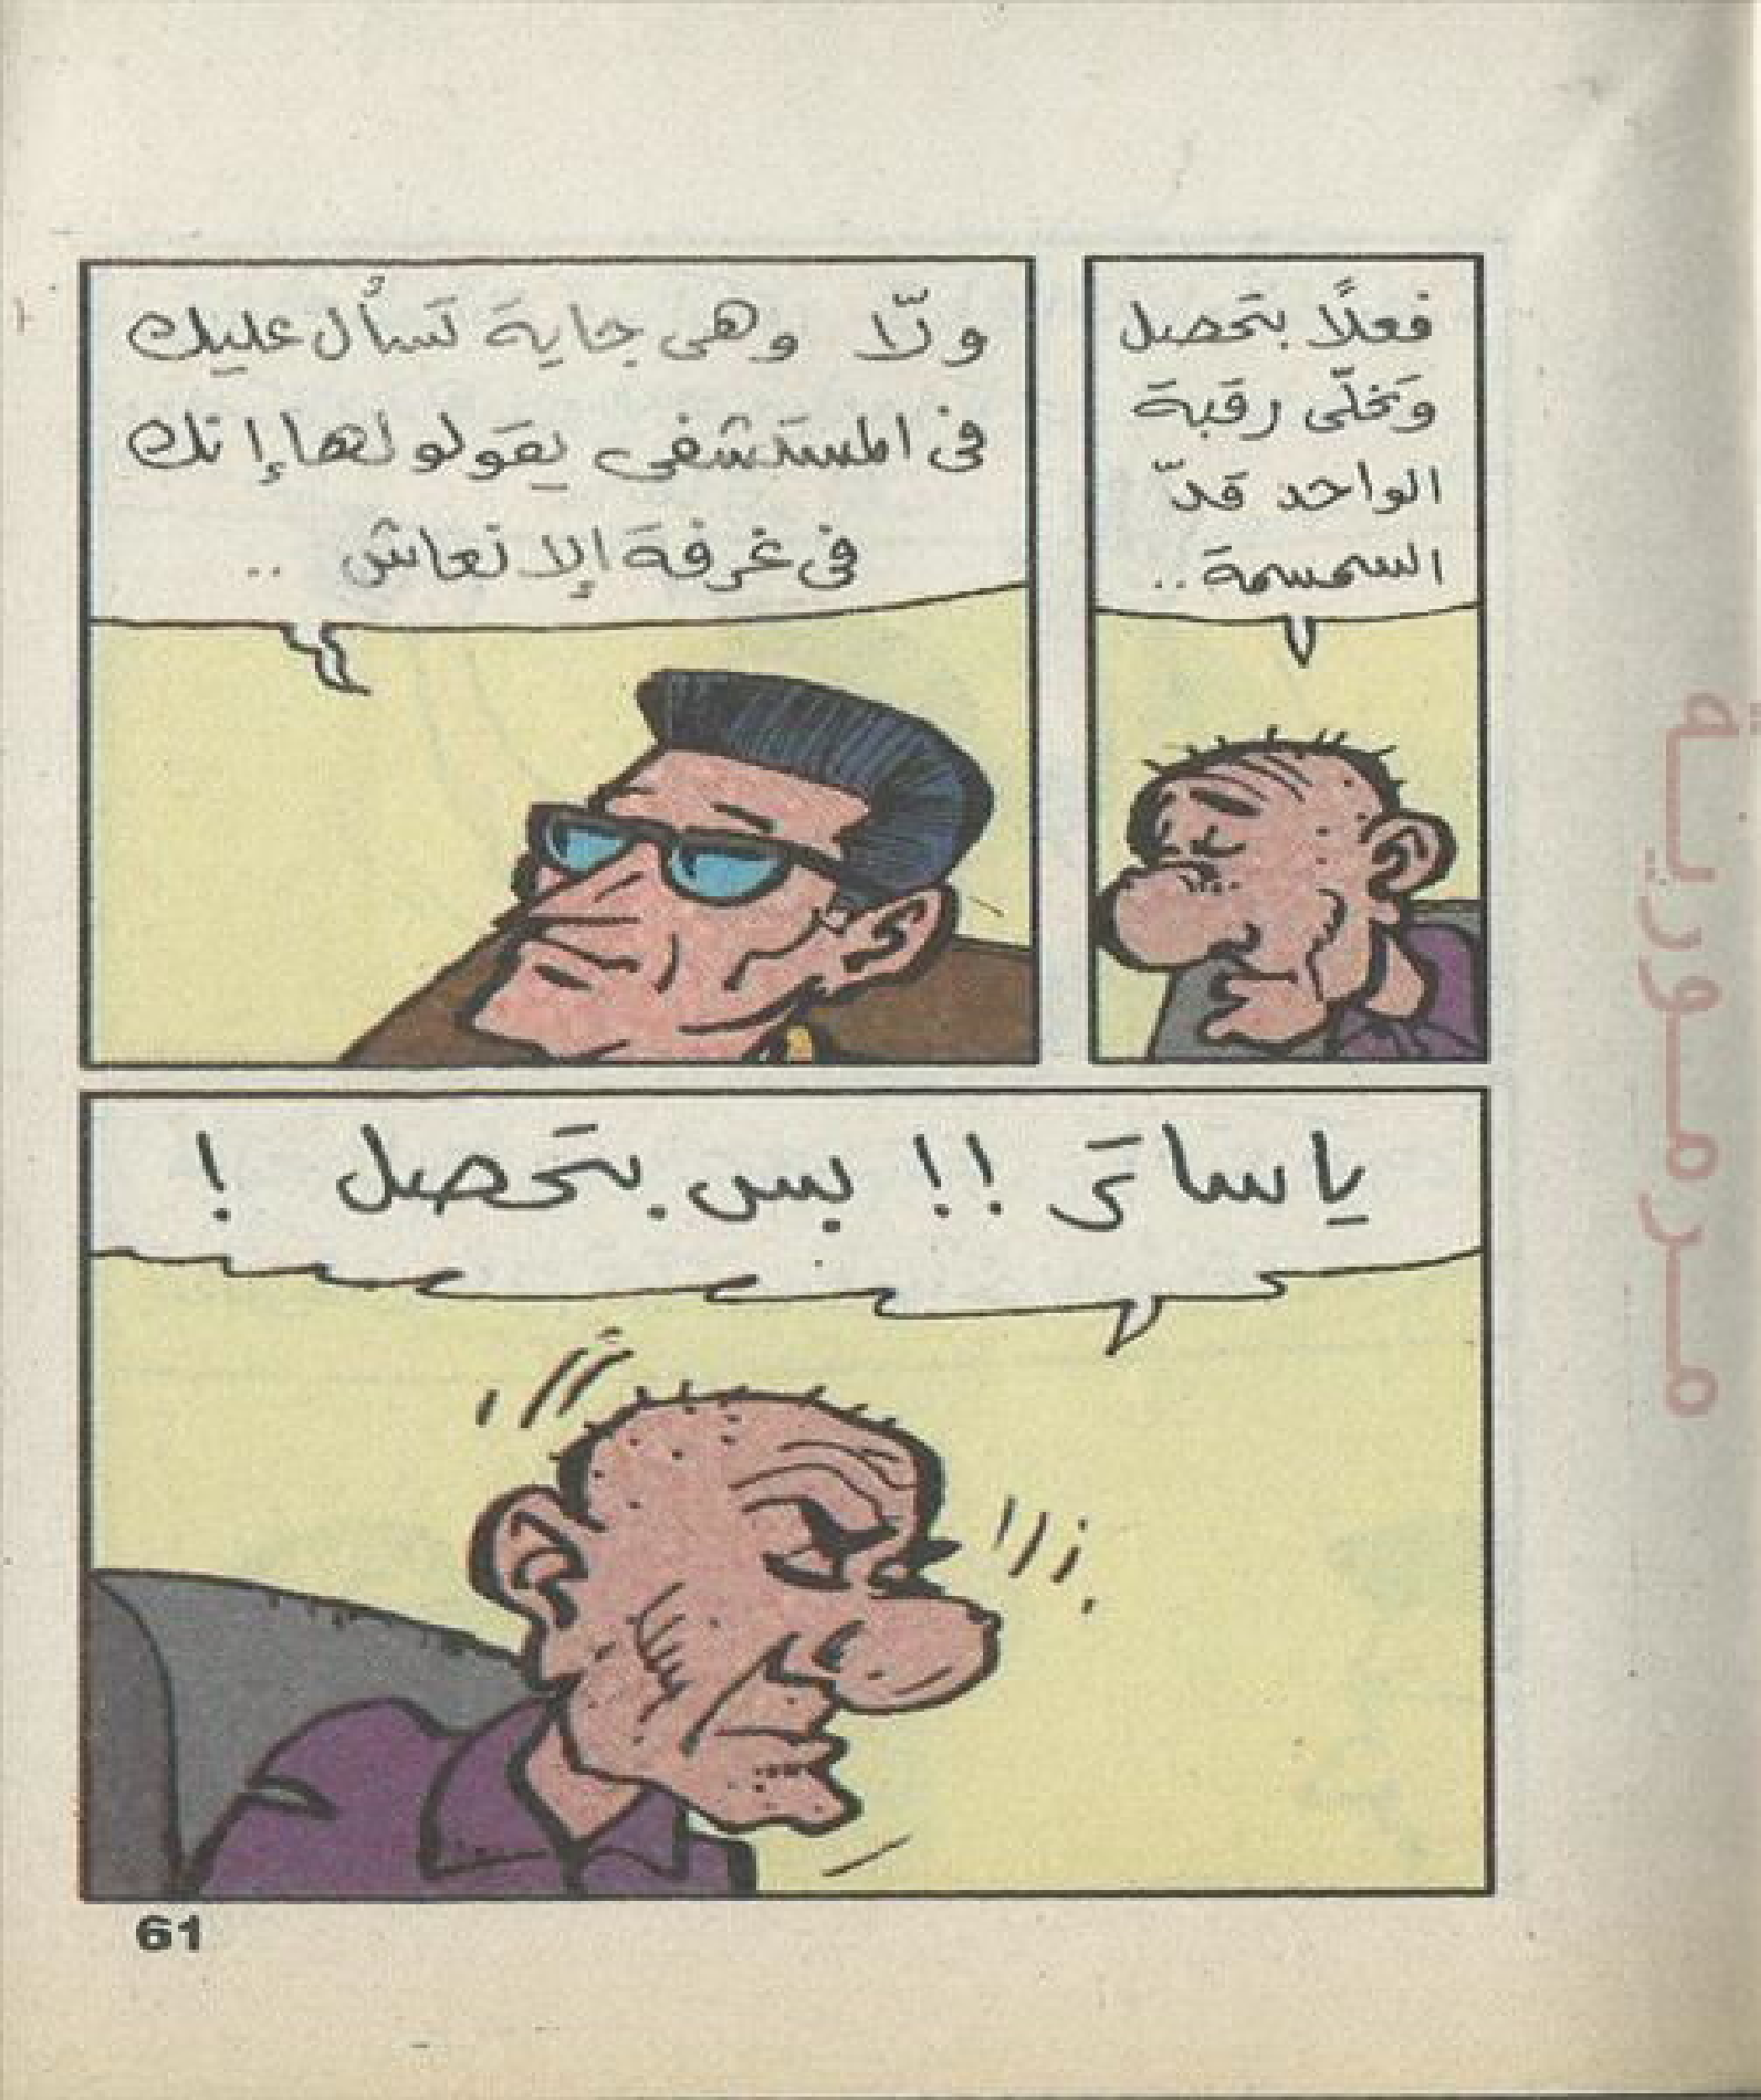 فعلًا بتَحصل
وتَخلّى رقبة
الواحد قدّ
السمسمة..
ولّا وهى جاية تسأل عليك
فى المستشفى يقولو لها إنك
فى غرفة الإنعاش ..
ياساتر !! بس بتَحصل !
61
مرمورية